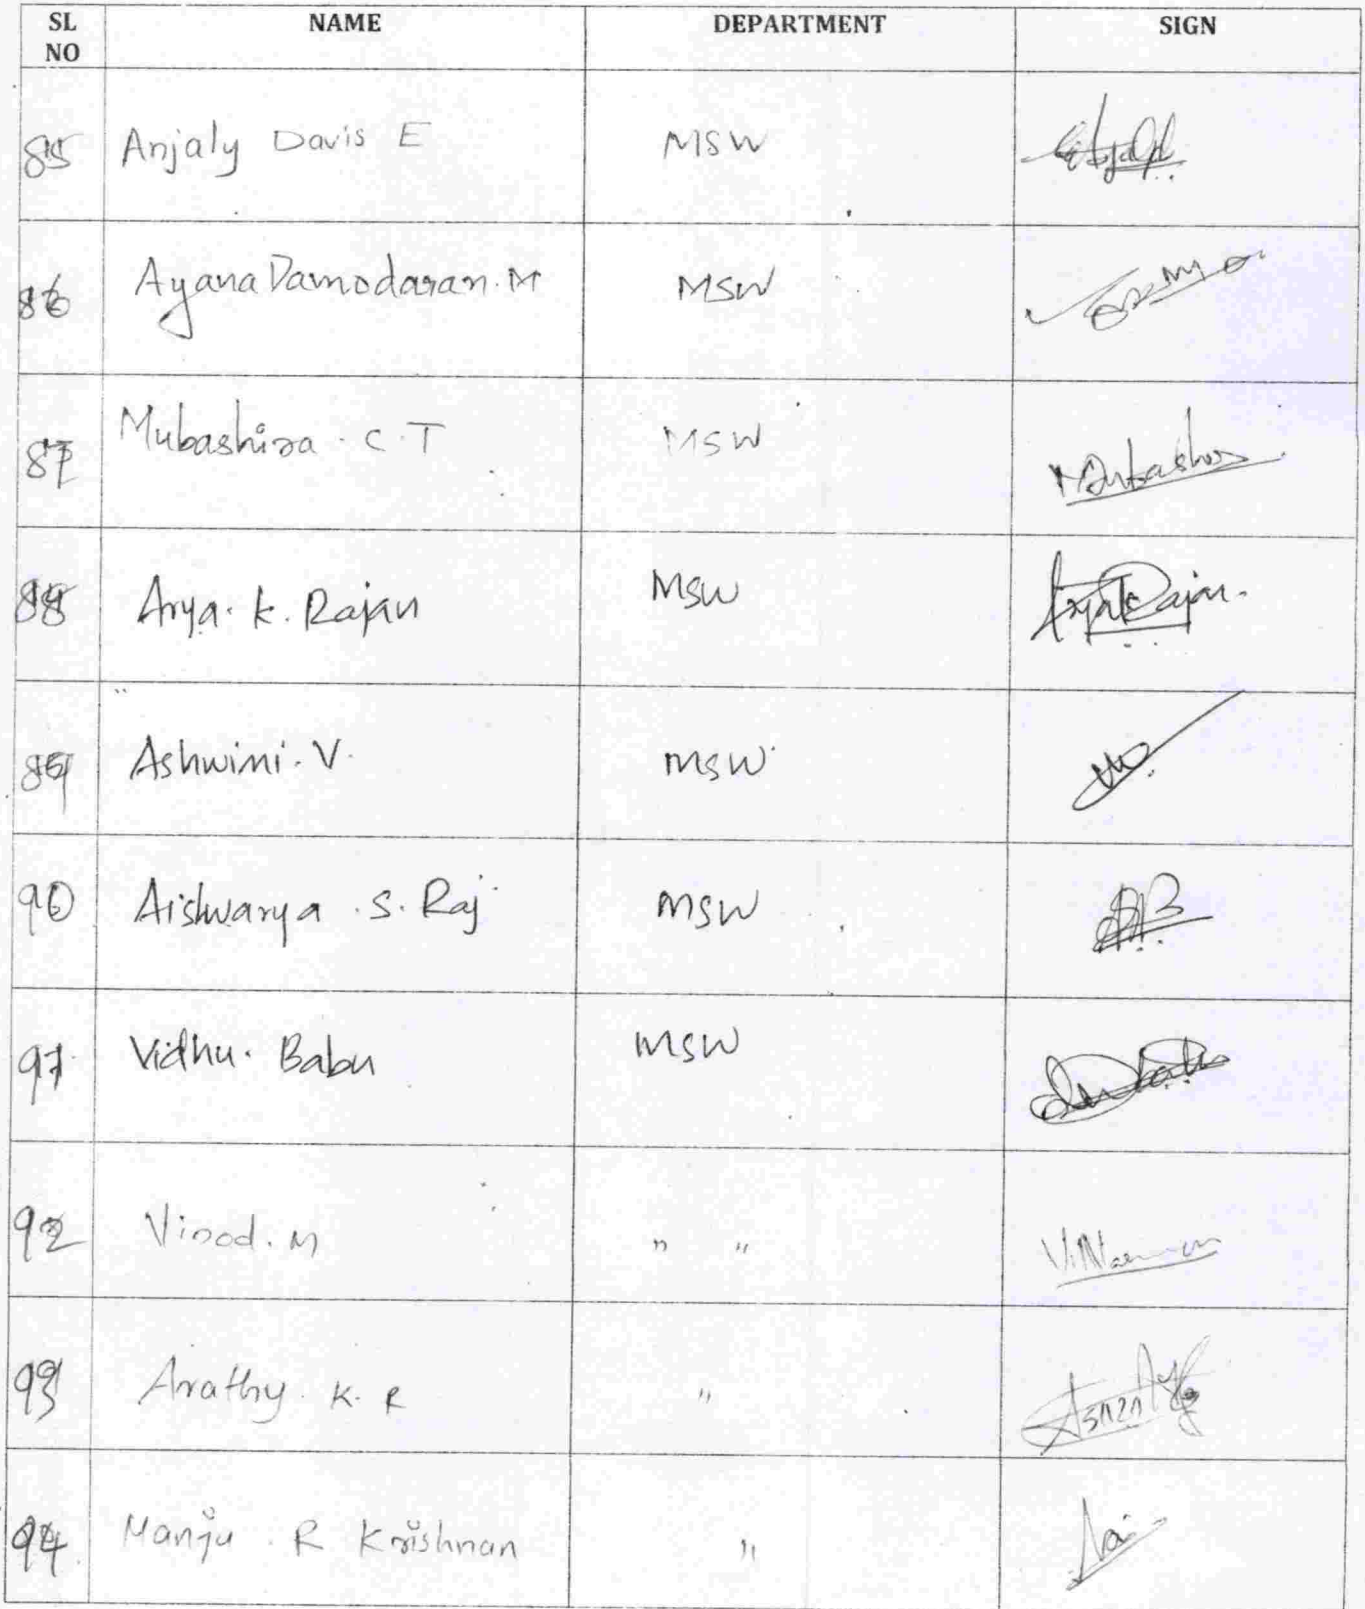 SL NO NAME DEPARTMENT SIGN
85 Anjaly Davis E MSW
86 Ayana Damodaran. M MSW
87 Mubashira. C. T MSW Mubashira
88 Arya. K. Rajan MSW Arya K Rajan.
89 Ashwini. V. MSW
90 Aishwarya. S. Raj MSW
91 Vidhu. Babu MSW
92 Vinod. M " "
93 Arathy. K. R "
94 Manju. R Krishnan "